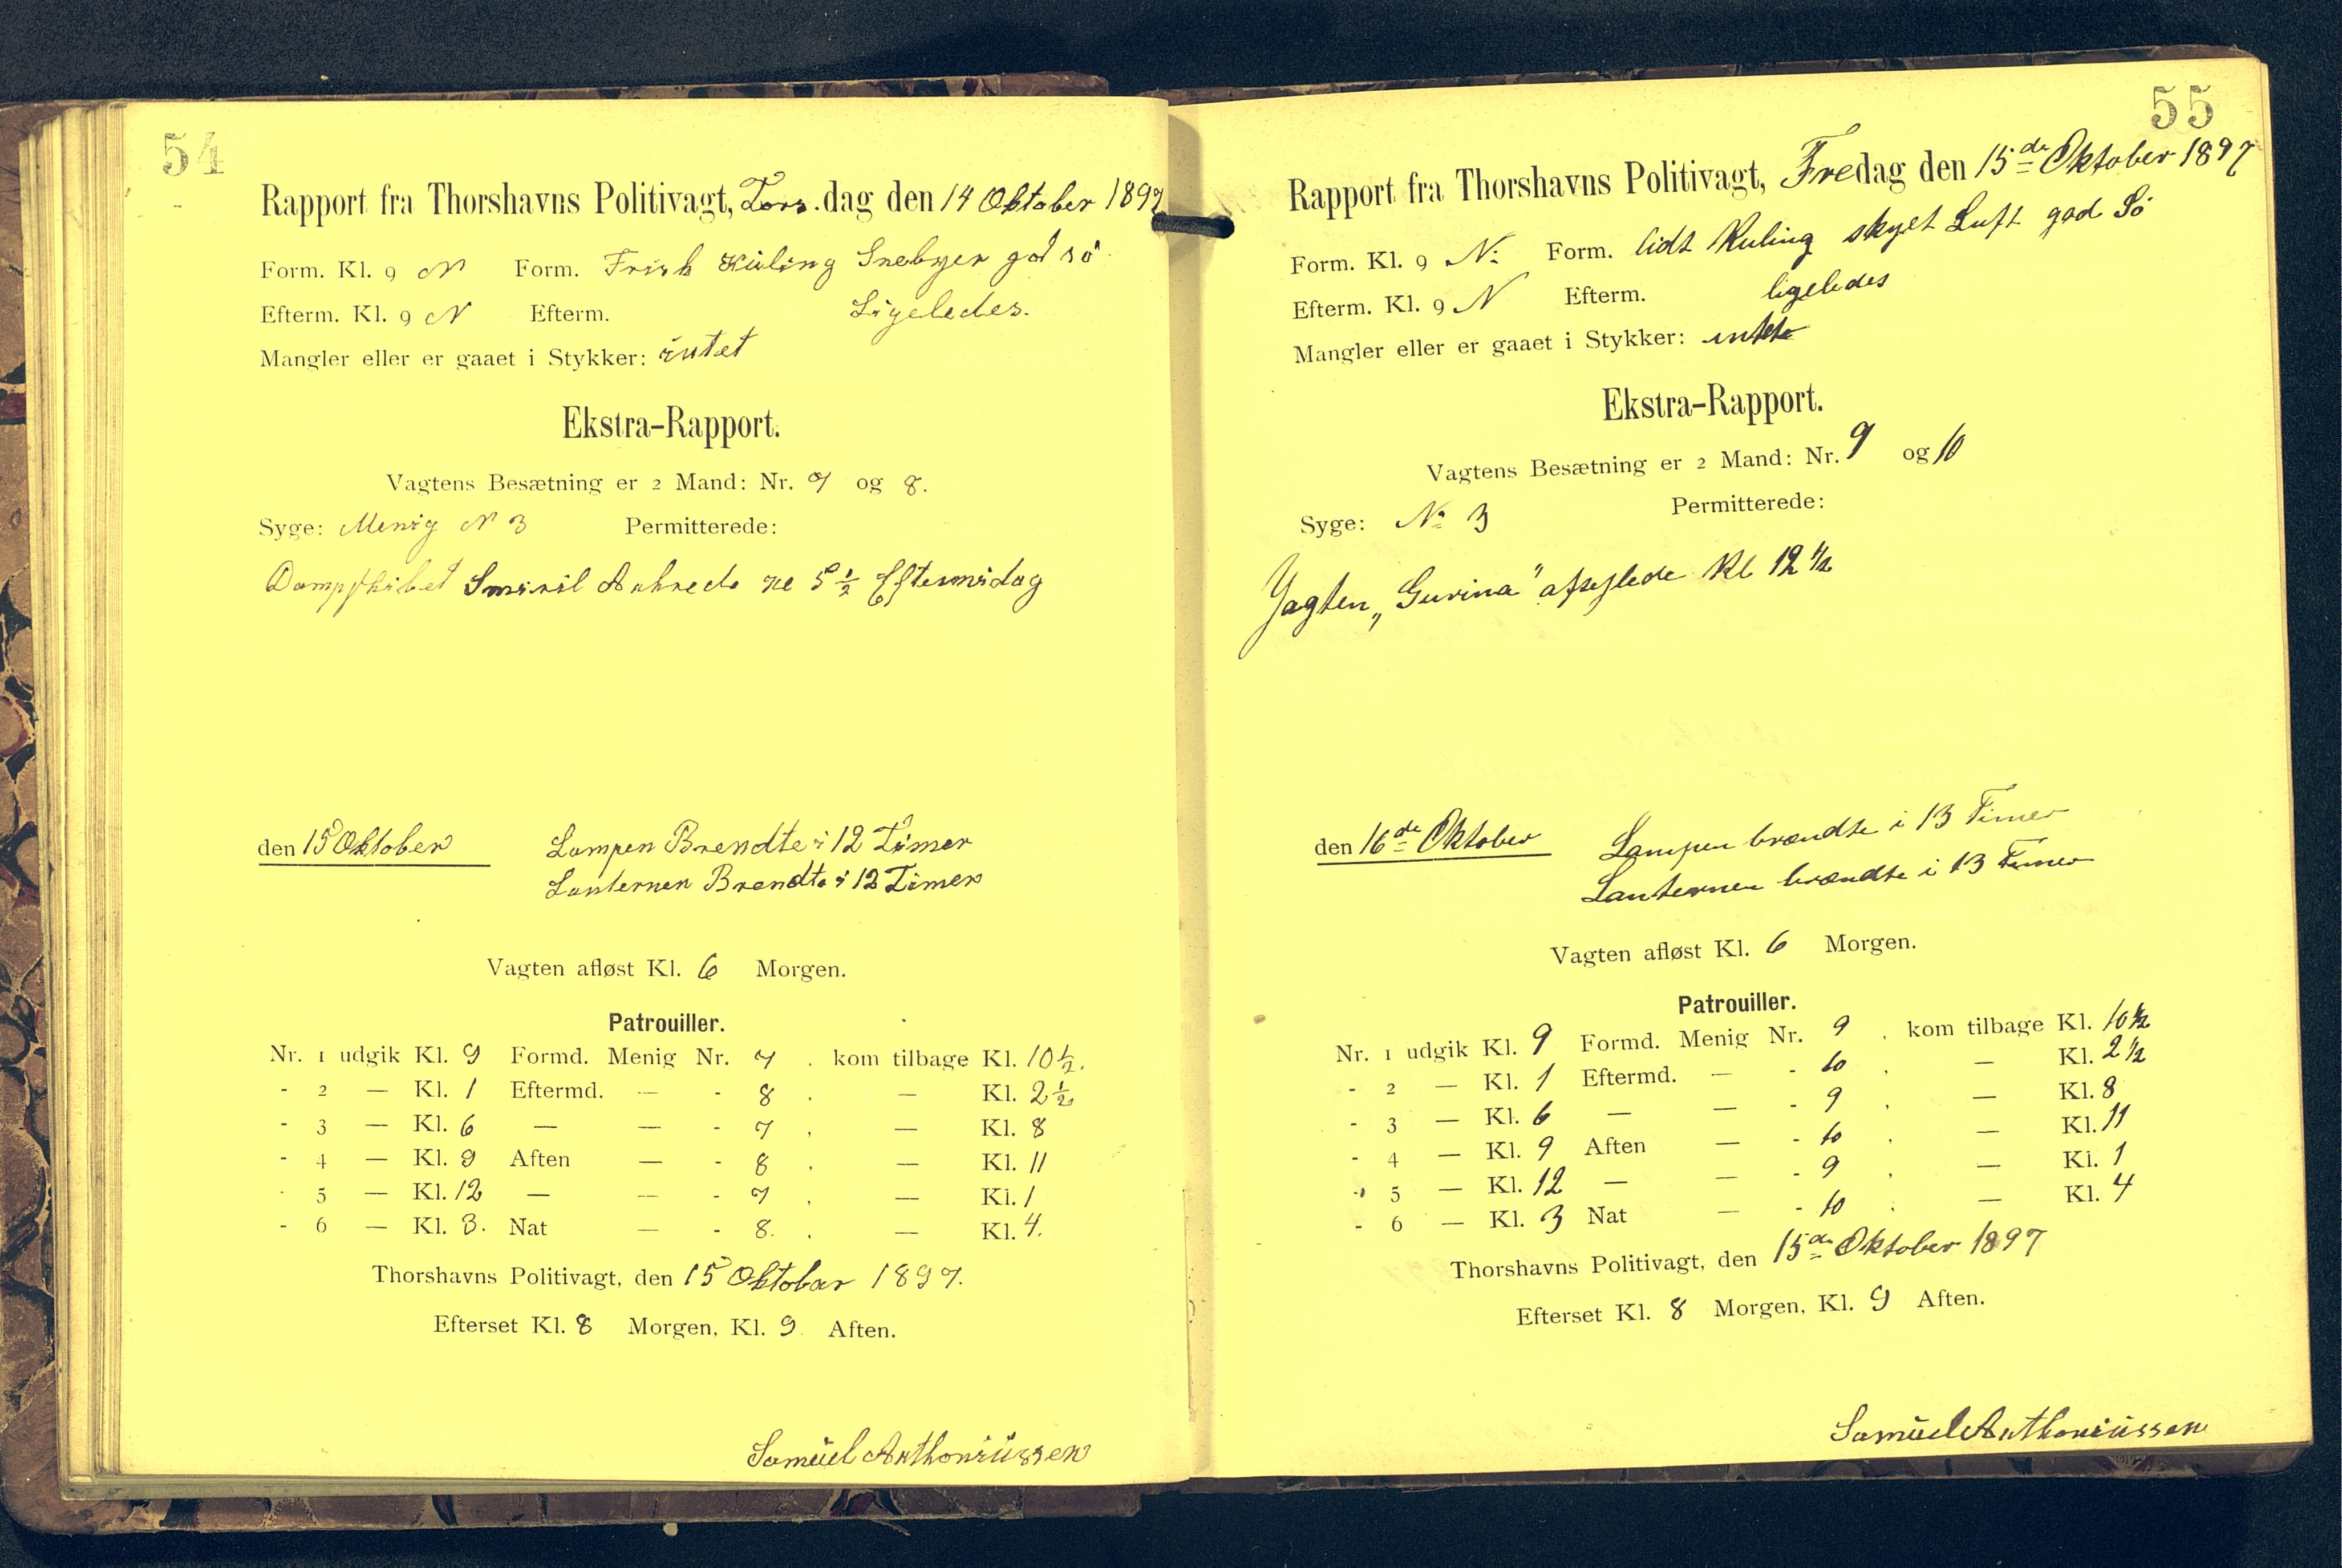 54
Rapport fra Thorshavns Politivagt, Torsdag den 14 Oktober 1897
Form. Kl. 9 N Form. Frisk Küling Snebyer god sö
Efterm. Kl. 9 N Efterm. Ligeledes.
Mangler eller er gaaet i Stykker: intet
Ekstra-Rapport.
Vagtens Besætning er 2 Mand: Nr. 7 og 8.
Syge: Menig N 3 Permitterede:
Dampskibet Smiril Ankrede Kl 5 1/2 Eftermidag
den 15 Oktober Lampen Brendte i 12 Timer
Lanternen Brendte i 12 Timer
Vagten afløst Kl. 6 Morgen.
Patrouiller.
Nr. 1 udgik Kl. 9 Formd. Menig Nr. 7 . kom tilbage Kl. 10 1/2.
- 2 — Kl. 1 Eftermd. — - 8 . — Kl. 2 1/2
- 3 — Kl. 6 — — - 7 . — Kl. 8
- 4 — Kl. 9 Aften — - 8 . — Kl. 11
- 5 — Kl. 12 — — - 7 . — Kl. 1
- 6 — Kl. 3. Nat — - 8. . — Kl. 4.
Thorshavns Politivagt, den 15 Oktobar 1897.
Efterset Kl. 8 Morgen, Kl. 9 Aften.
Samüel Anthoniüssen
55
Rapport fra Thorshavns Politivagt, Fredag den 15de Oktober 1897
Form. Kl. 9 N: Form. lidt Kuling skyet Luft god Sö
Efterm. Kl. 9 N Efterm. ligeledes
Mangler eller er gaaet i Stykker:
Ekstra-Rapport.
Vagtens Besætning er 2 Mand: Nr. 9 og 10
Syge: No 3 Permitterede:
Jagten „Gurina" afsejlede Kl 12 1/2
den 16de Oktober Lampen brændte i 13 Timer
Lanternen brændte i 13 Timer
Vagten afløst Kl. 6 Morgen.
Patrouiller.
Nr. 1 udgik Kl. 9 Formd. Menig Nr. 9 . kom tilbage Kl. 10 1/2
- 2 — Kl. 1 Eftermd. — - 10 . — Kl. 2 1/2
- 3 — Kl. 6 — — - 9 . — Kl. 8
- 4 — Kl. 9 Aften — - 10 . — Kl. 11
- 5 — Kl. 12 — — - 9 . — Kl. 1
- 6 — Kl. 3 Nat — - 10 . — Kl. 4
Thorshavns Politivagt, den 15de Oktober 1897
Efterset Kl. 8 Morgen, Kl. 9 Aften.
Samüel Anthoniüssen